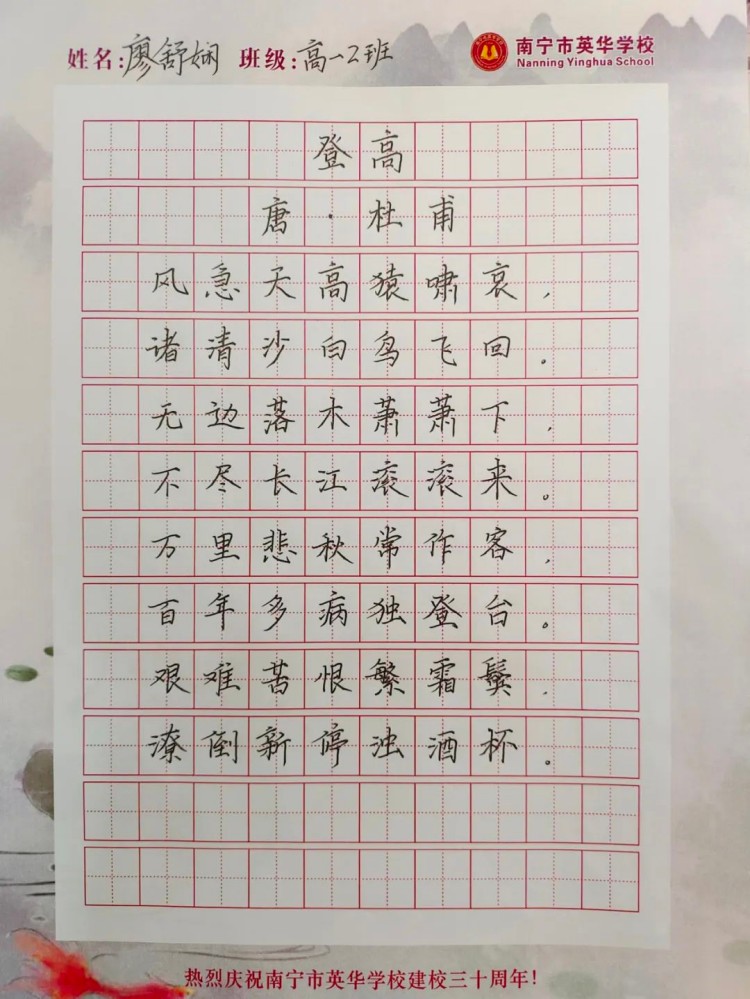 姓名:廖舒娴 班级:高一2班
南宁市英华学校
Nanning Yinghua School
登高
唐·杜甫
风急天高猿啸哀,
诸清沙白鸟飞回。
无边落木萧萧下,
不尽长江滚滚来。
万里悲秋常作客,
百年多病独登台。
艰难苦恨繁霜鬓,
潦倒新停浊酒杯。
热烈庆祝南宁市英华学校建校三十周年!